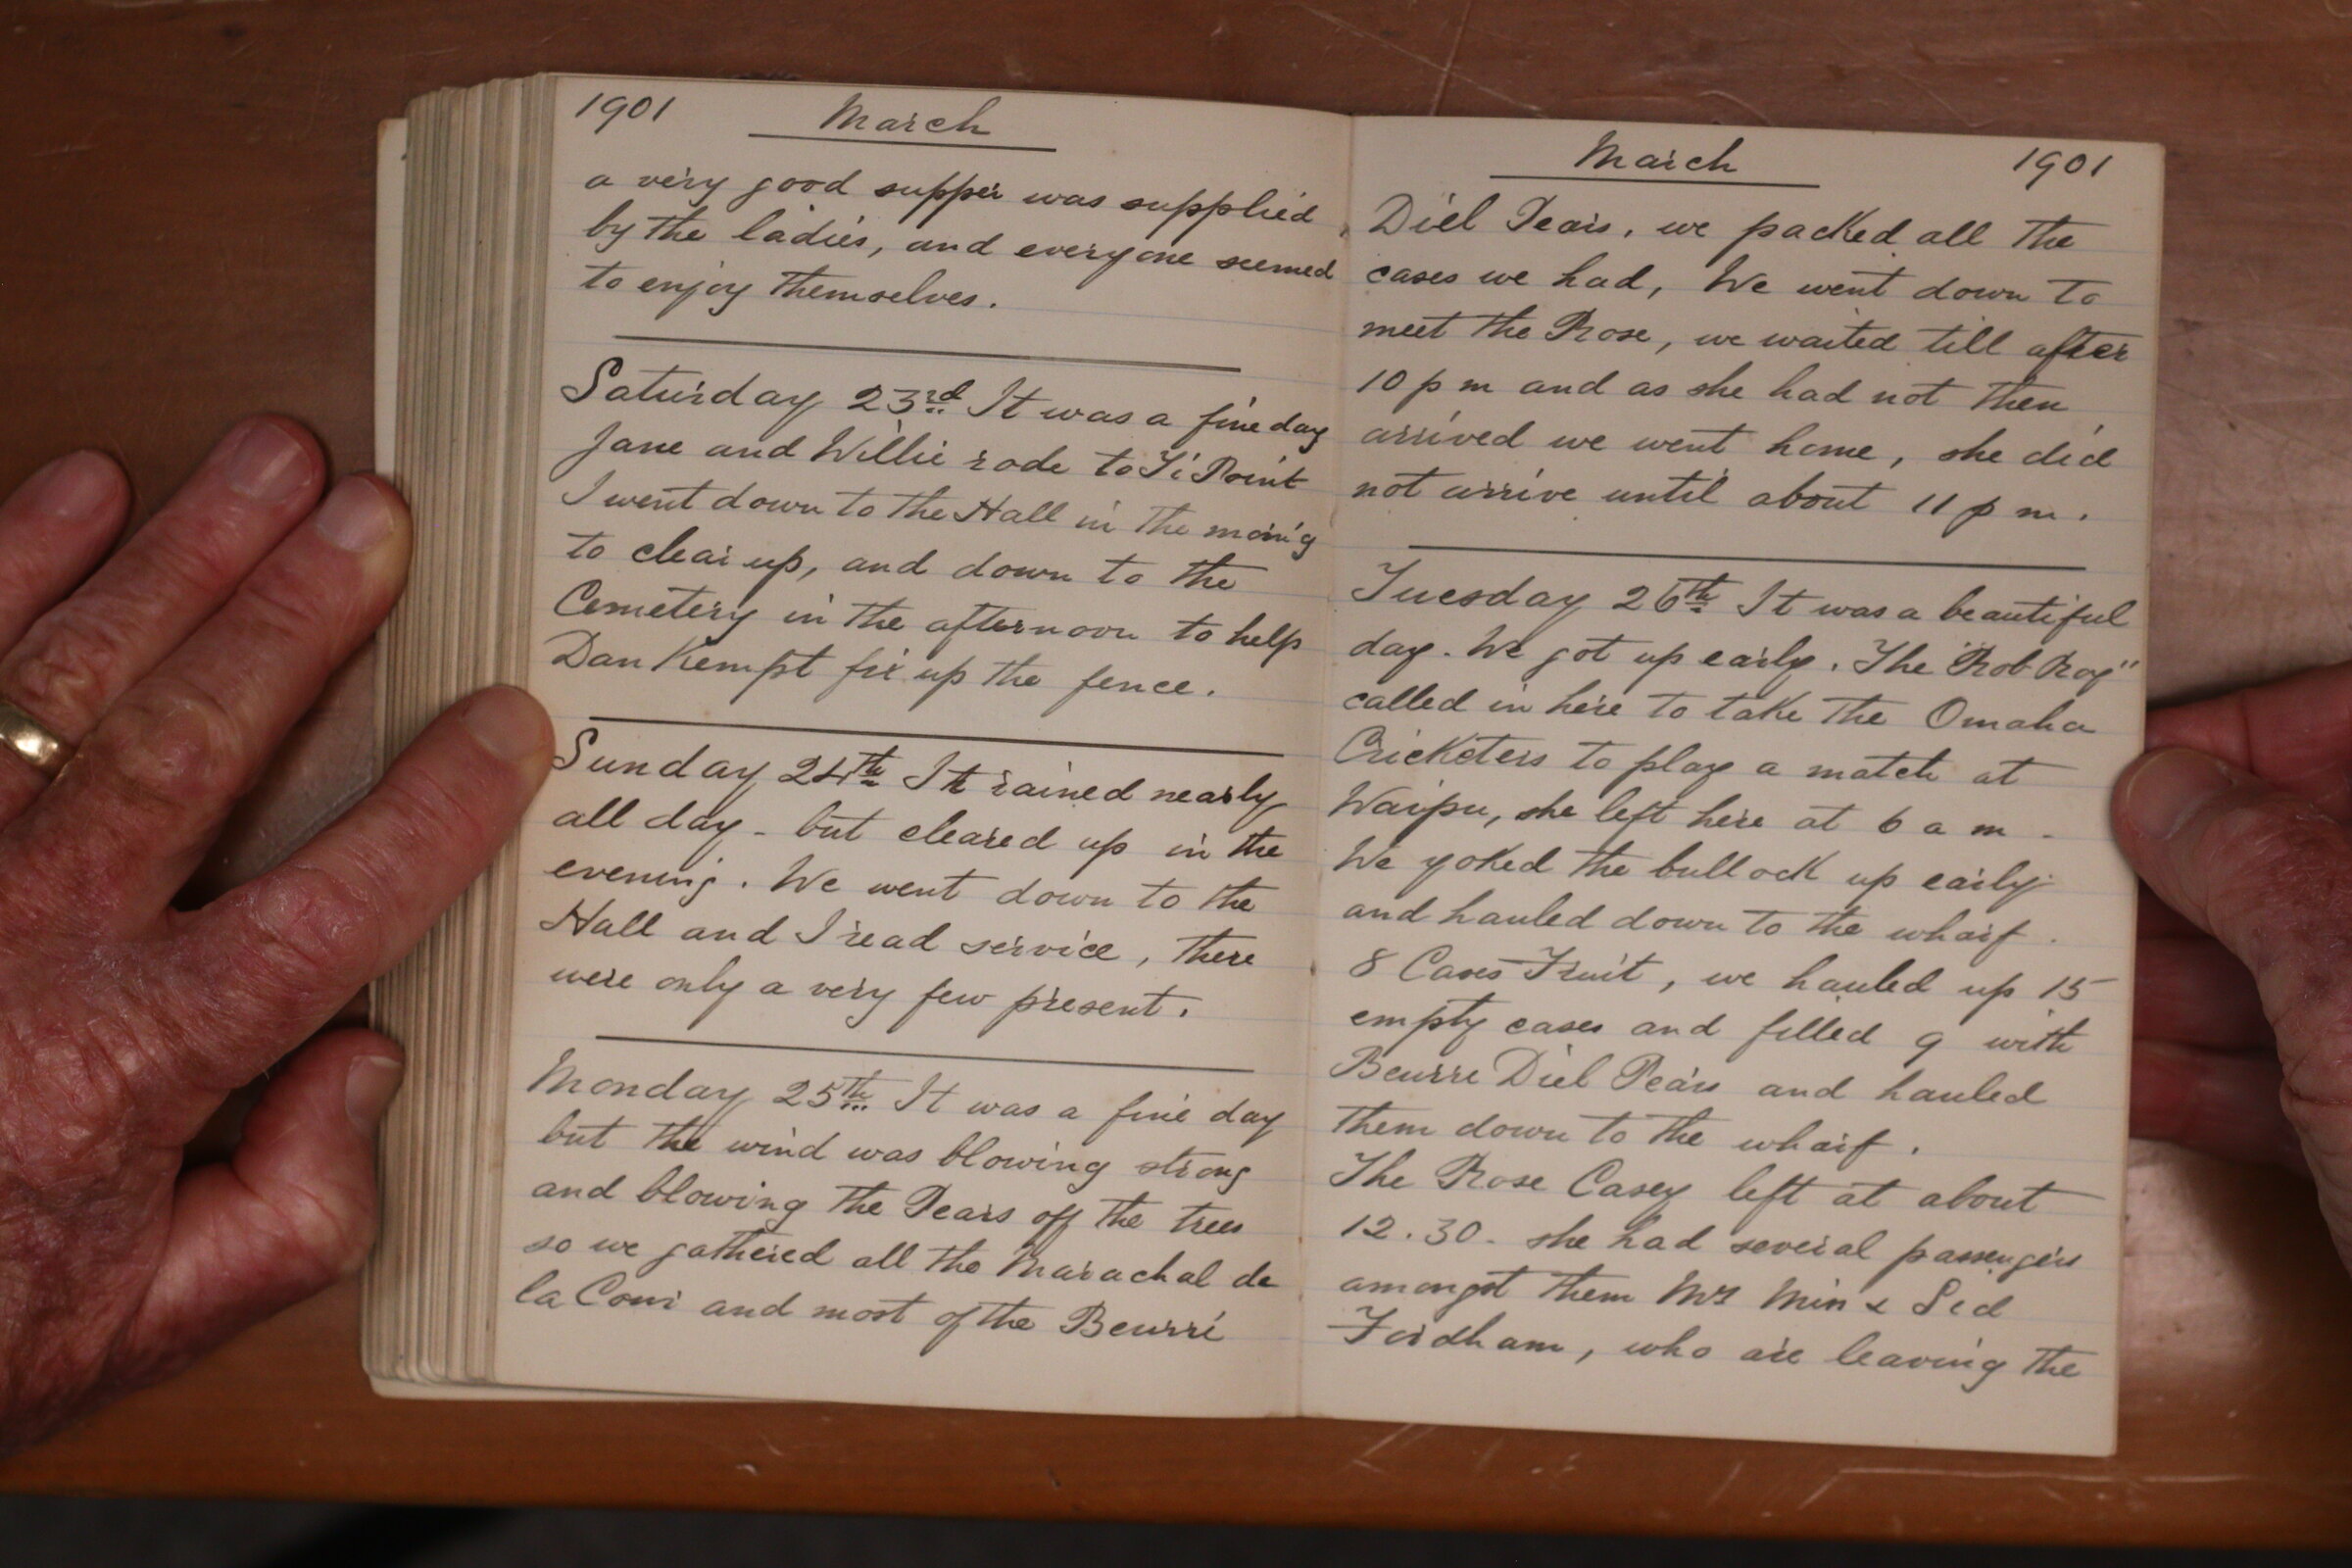 1901 March
a very good supper was supplied
by the ladies, and everyone seemed
to enjoy themselves.
Saturday 23rd It was a fine day
Jane and Willie rode to Ti Point
I went down to the Hall in the morn'g
to clear up, and down to the
Cemetery in the afternoon to help
Dan Kempt fix up the fence.
Sunday 24th It rained nearly
all day - but cleared up in the
evening. We went down to the
Hall and I read service, there
were only a very few present.
Monday 25th It was a fine day
but the wind was blowing strong
and blowing the Pears off the trees
so we gathered all the Marachal de
la Cour and most of the Beurré
March 1901
Diel Pears, we packed all the
cases we had, We went down to
meet the Rose, we waited till after
10 p m and as she had not then
arrived we went home, she did
not arrive until about 11 p m.
Tuesday 26th It was a beautiful
day. We got up early. The "Rob Roy"
called in here to take the Omaha
Cricketers to play a match at
Waipu, she left here at 6 a m -
We yoked the bullock up early
and hauled down to the wharf.
8 Cases Fruit, we hauled up 15
empty cases and filled 9 with
Beurre Diel Pears and hauled
them down to the wharf.
The Rose Casey left at about
12.30 - she had several passengers
amongst them Mrs Min & Sid
Fordham, who are leaving the